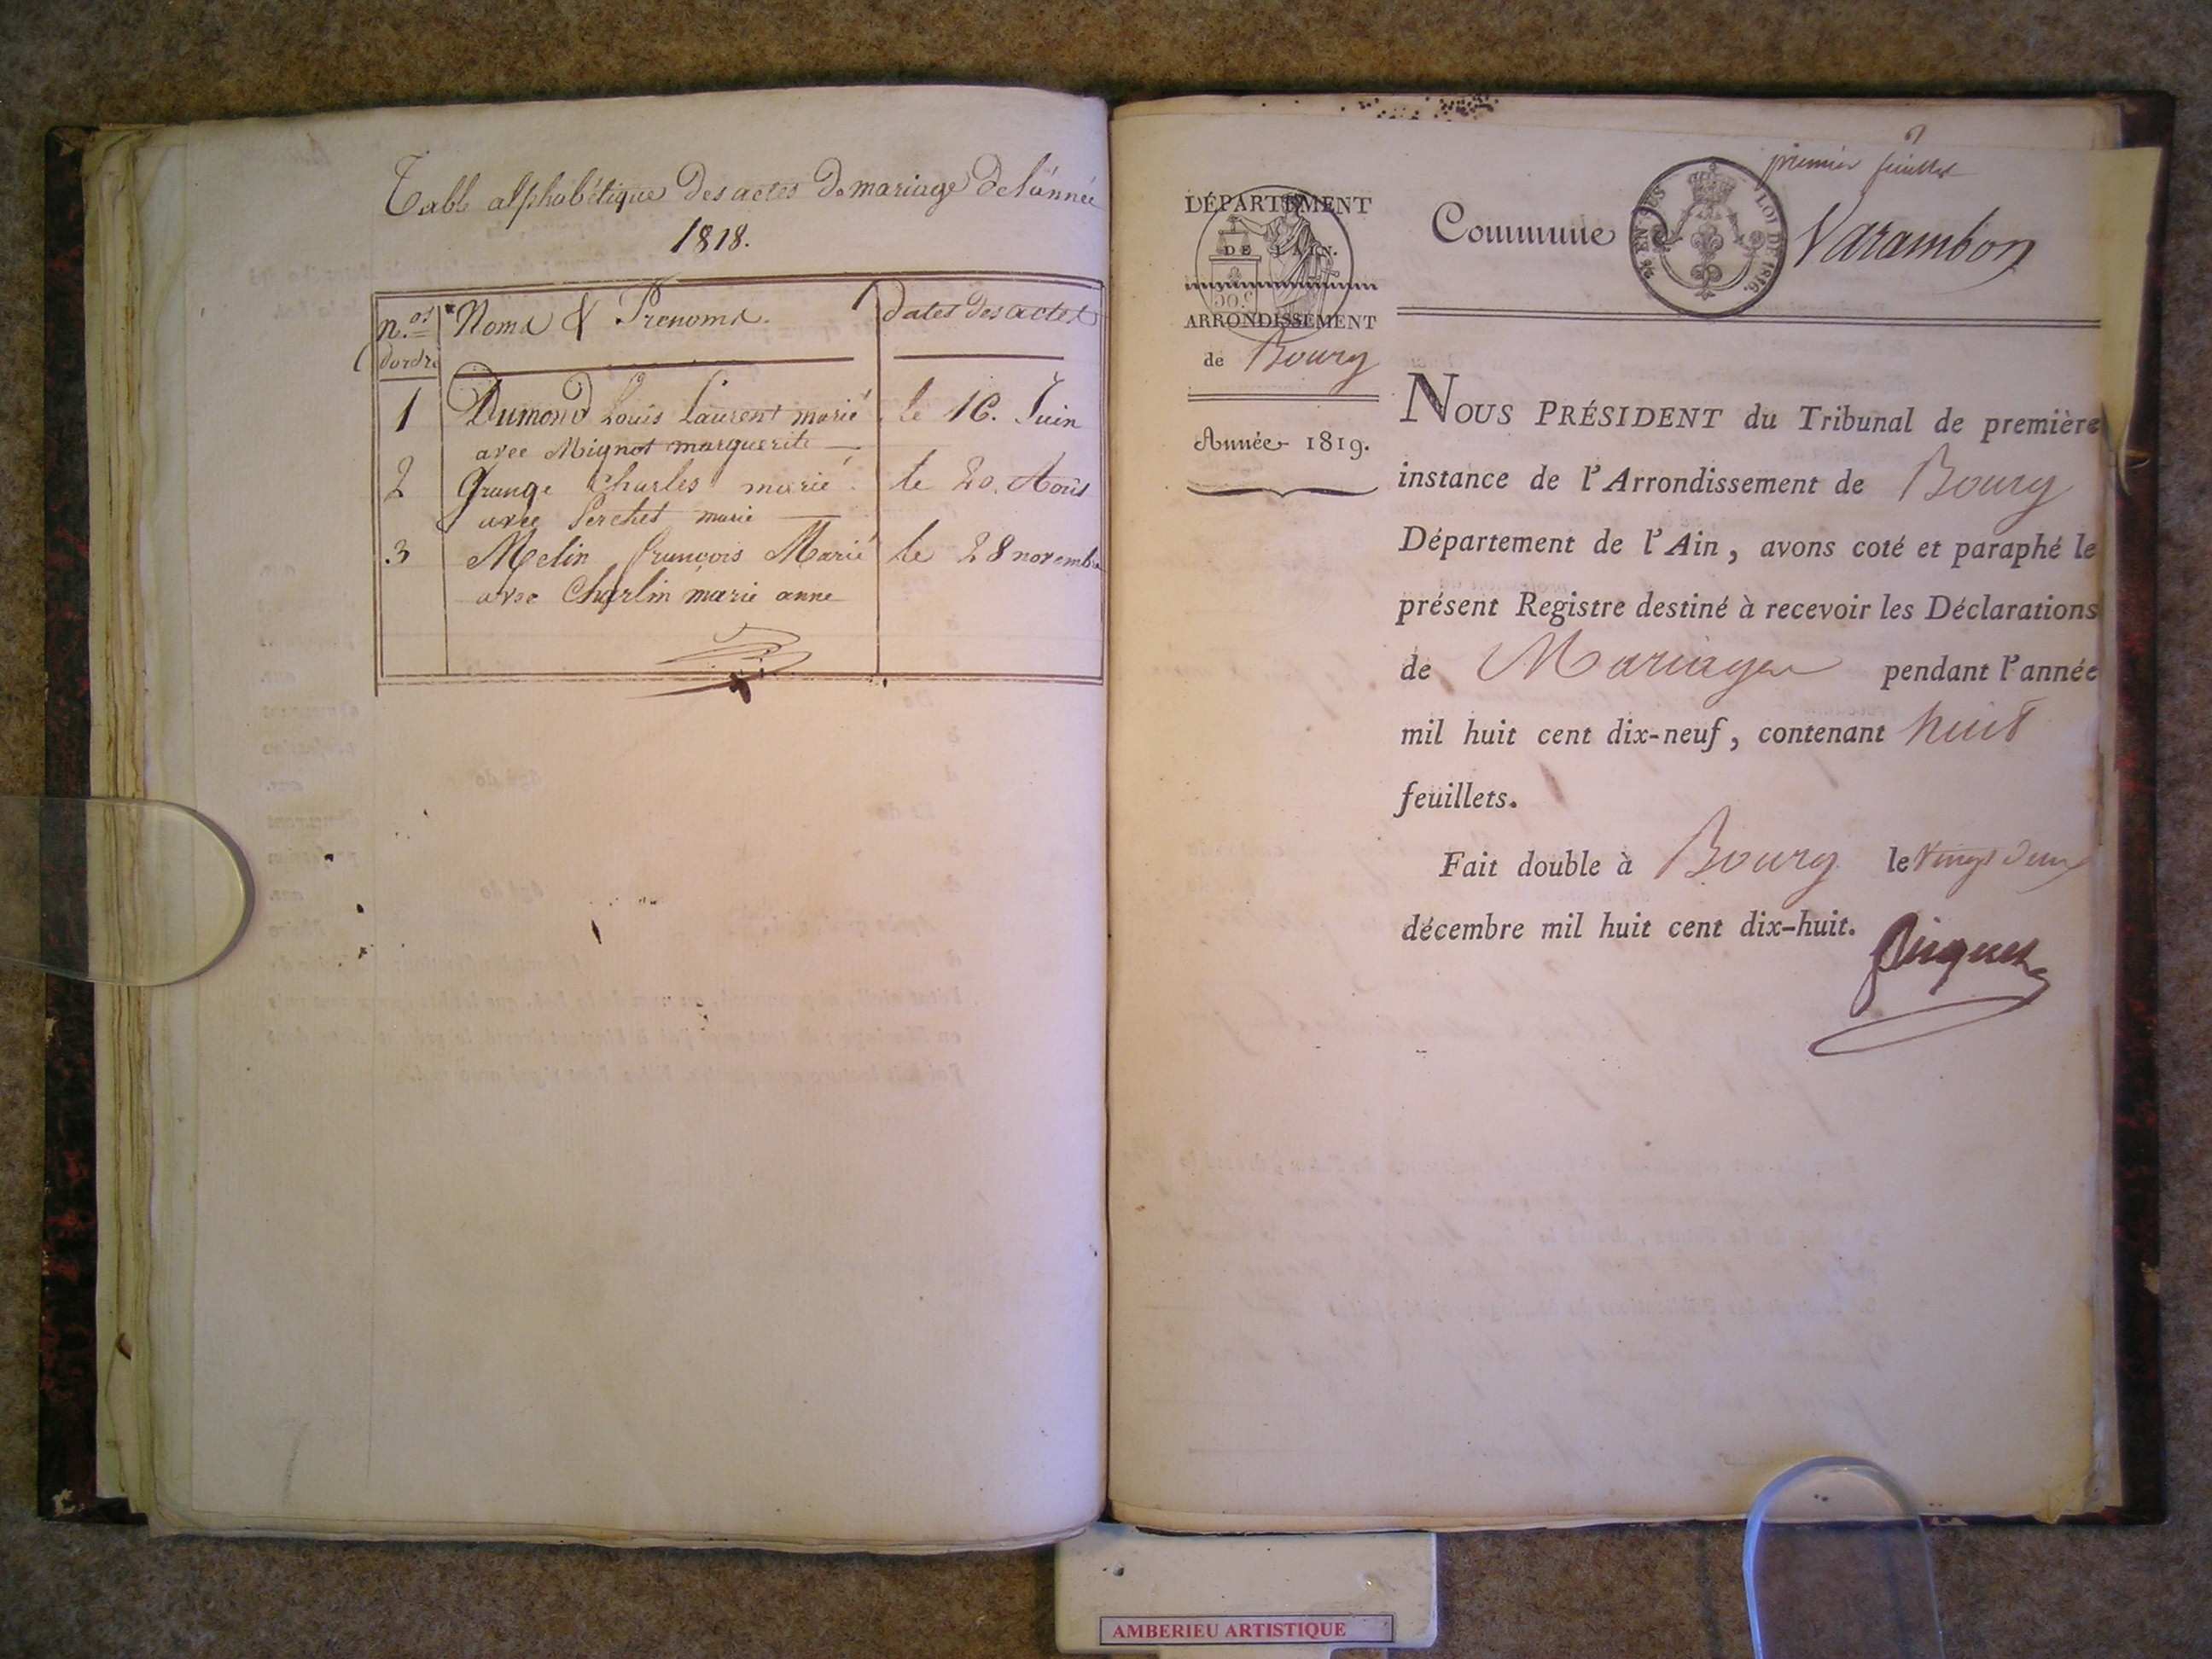 Table alphabétique des actes de mariage de l'année
1818.
n.os d'ordre
Noms & Prenoms.
dates des actes
1 Dumond Louis Laurent marié le 16. Juin
avec Mignot marguerite
2 Grange Charles marié le 20. Août
avec Perchet marie
3 Melin françois Marié le 28 novembre
avec Charlin marie anne
premier feuillet
DÉPARTEMENT
DE L'AIN.
ARRONDISSEMENT
de Bourg
Année 1819.
Commune Varambon
LOI DE 1816.
NOUS PRÉSIDENT du Tribunal de première
instance de l'Arrondissement de Bourg
Département de l'Ain, avons coté et paraphé le
présent Registre destiné à recevoir les Déclarations
de Mariages pendant l'année
mil huit cent dix-neuf, contenant huit
feuillets.
Fait double à Bourg le vingt deux
décembre mil huit cent dix-huit.
AMBERIEU ARTISTIQUE